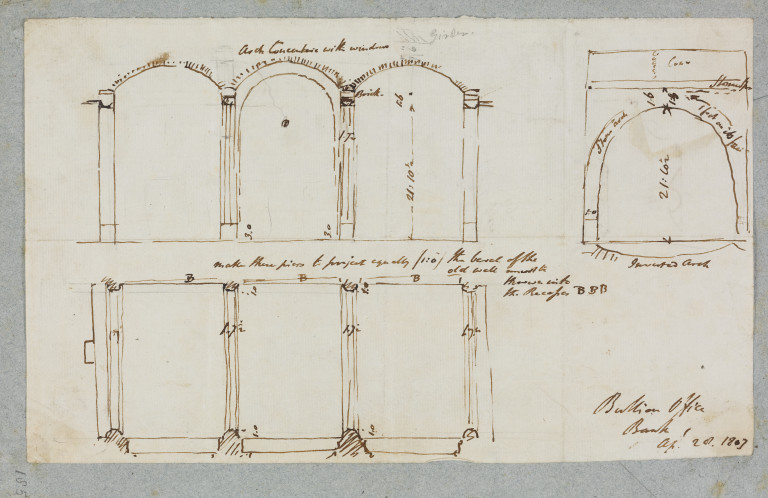 Arch Concentric with window
Girder.
Brick
1.6
1.7
21:10½
3.0
3.0
Cove
1.6
1.6
Stone Arch
21:10½
Inverted Arch
make these piers to project equally (1:0) the bevel of the
old wall must be
thrown into
the Recesses B B B
B
B
B
1.0
1.0
1.7½
1.7½
1.7½
1.0
1.0
Bullion Office
Bank
Ap.l 28. 1807
185